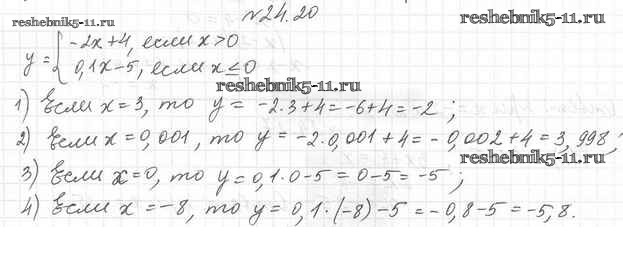 №24.20
reshebnik5-11.ru
reshebnik5-11.ru
y = { -2x+4, если x>0
0,1x-5, если x≤0
reshebnik5-11.ru
1) Если x=3, то y = -2·3+4=-6+4=-2;
2) Если x=0,001, то y = -2·0,001+4=-0,002+4=3,998;
reshebnik5-11.ru
3) Если x=0, то y=0,1·0-5=0-5=-5;
4) Если x=-8, то y=0,1·(-8)-5=-0,8-5=-5,8.